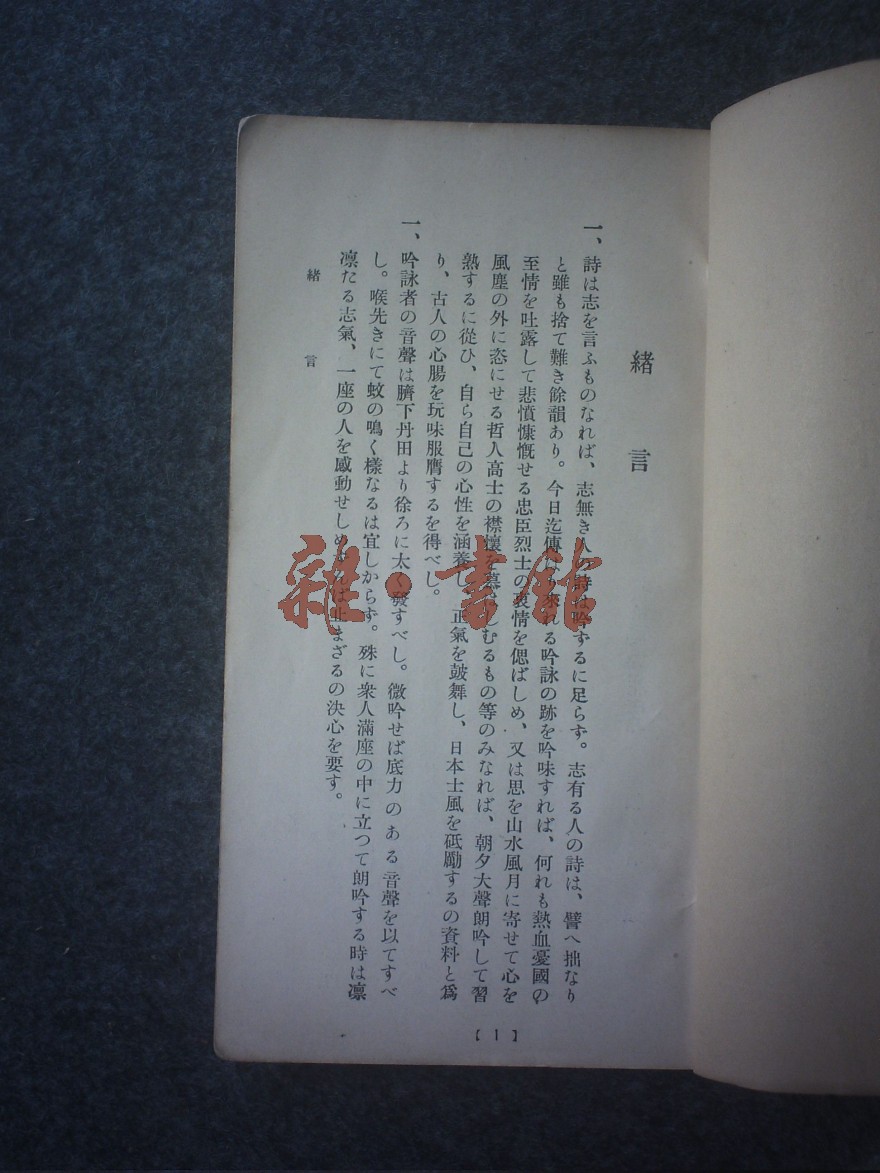 緖言
一、詩は志を言ふものなれば、志無き人の詩は吟ずるに足らず。志有る人の詩は、譬へ拙なり
と雖も捨て難き餘韻あり。今日迄傳はり來れる吟詠の跡を吟味すれば、何れも熱血憂國の
至情を吐露して悲憤慷慨せる忠臣烈士の衷情を偲ばしめ、又は思を山水風月に寄せて心を
風塵の外に恣にせる哲人高士の襟懷を慕はしむるもの等のみなれば、朝夕大聲朗吟して習
熟するに從ひ、自ら自己の心性を涵養し、正氣を鼓舞し、日本士風を砥勵するの資料と爲
り、古人の心腸を玩味服膺するを得べし。
一、吟詠者の音聲は臍下丹田より徐ろに太く發すべし。微吟せば底力のある音聲を以てすべ
し。喉先きにて蚊の鳴く樣なるは宜しからず。殊に衆人滿座の中に立つて朗吟する時は凛
凛たる志氣、一座の人を感動せしめずんば止まざるの決心を要す。
緖言
【1】
雜·書館